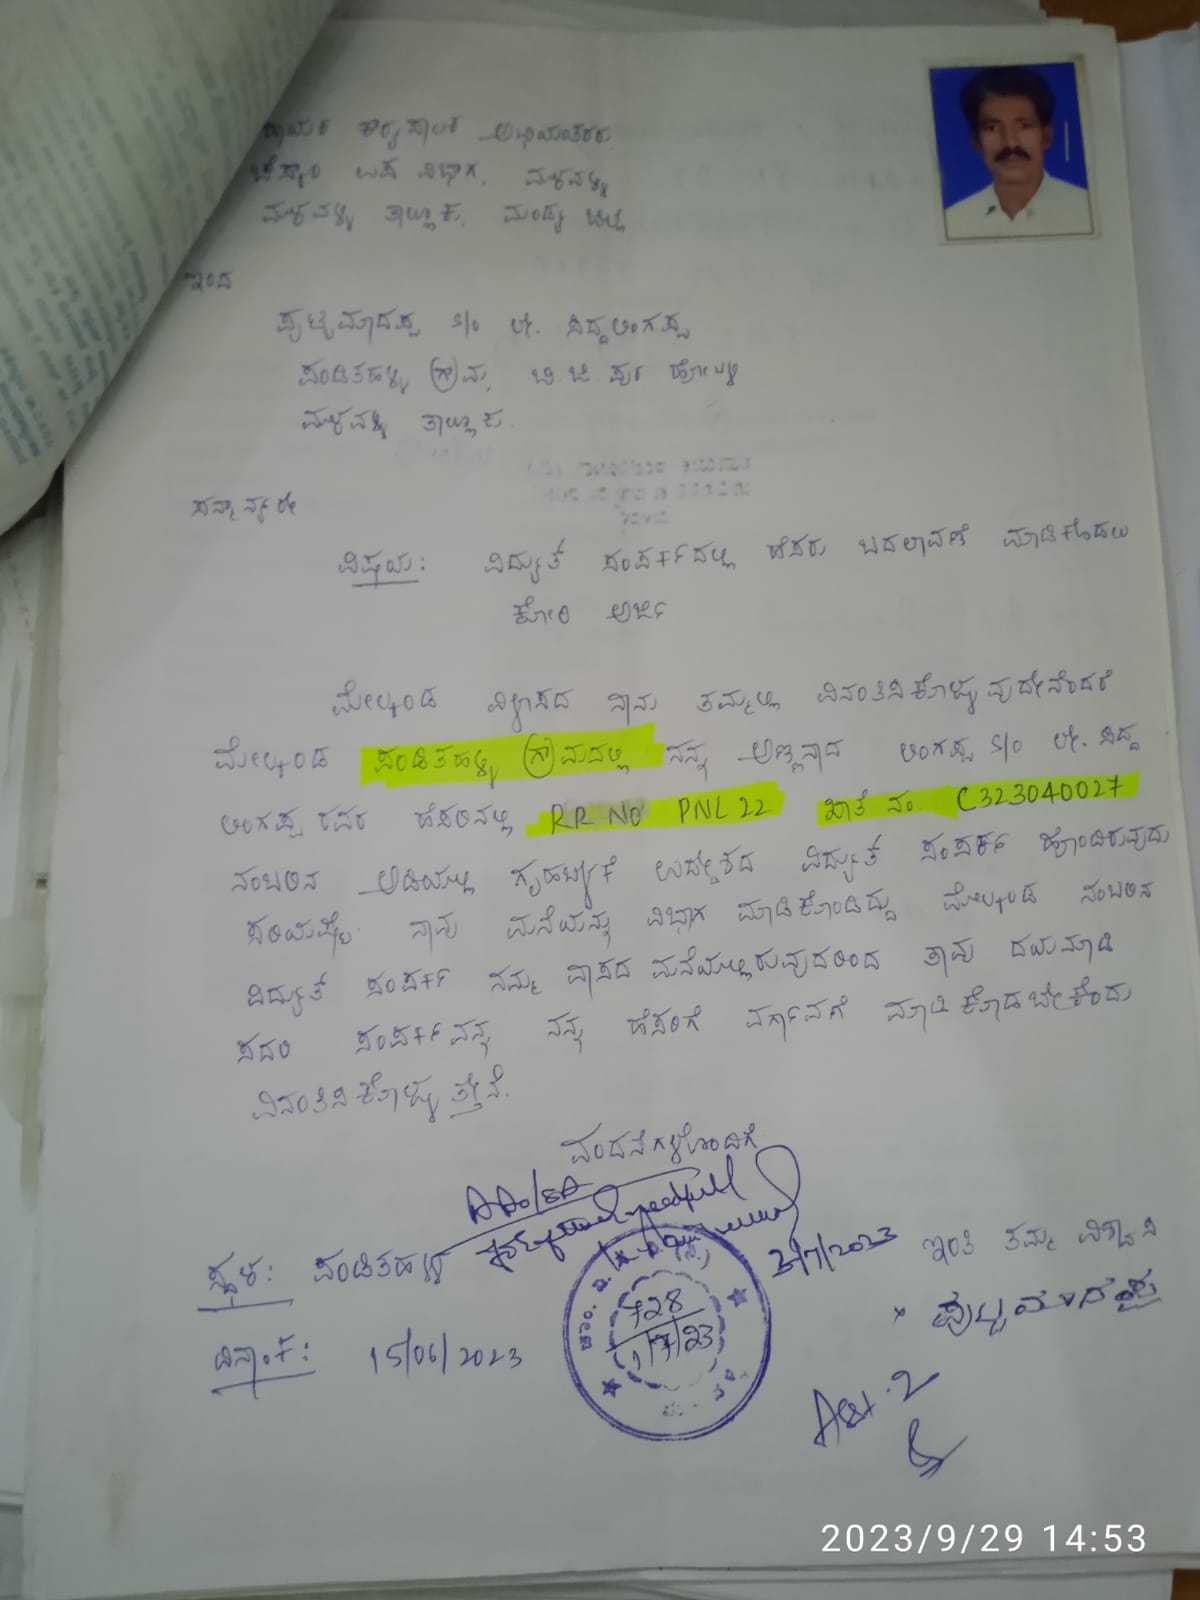 ಕಾರ್ಯಪಾಲಕ ಅಭಿಯಂತರರು
ಚೆಸ್ಕಾಂ ಉಪ ವಿಭಾಗ, ಮಳವಳ್ಳಿ
ಮಳವಳ್ಳಿ ತಾಲ್ಲೂಕು, ಮಂಡ್ಯ ಜಿಲ್ಲೆ
ಇಂದ
ಪುಟ್ಟಮಾದಪ್ಪ S/o ಲೇ. ಸಿದ್ದಲಿಂಗಪ್ಪ
ಪಂಡಿತಹಳ್ಳಿ ಗ್ರಾಮ, ಬಿ.ಜಿ.ಪುರ ಹೋಬಳಿ
ಮಳವಳ್ಳಿ ತಾಲ್ಲೂಕು.
ಸನ್ಮಾನ್ಯರೇ
ವಿಷಯ: ವಿದ್ಯುತ್ ಸಂಪರ್ಕದಲ್ಲಿ ಹೆಸರು ಬದಲಾವಣೆ ಮಾಡಿಕೊಡಲು
ಕೋರಿ ಅರ್ಜಿ
ಮೇಲ್ಕಂಡ ವಿಳಾಸದ ನಾನು ತಮ್ಮಲ್ಲಿ ವಿನಂತಿಸಿಕೊಳ್ಳುವುದೇನೆಂದರೆ
ಮೇಲ್ಕಂಡ ಪಂಡಿತಹಳ್ಳಿ ಗ್ರಾಮದಲ್ಲಿ ನನ್ನ ಅಣ್ಣನಾದ ಲಿಂಗಪ್ಪ S/o ಲೇ. ಸಿದ್ದ
ಲಿಂಗಪ್ಪ ರವರ ಹೆಸರಿನಲ್ಲಿ RR NO PNL 22 ಖಾತೆ ನಂ. C323040027
ನಂಬರಿನ ಅಡಿಯಲ್ಲಿ ಗೃಹಬಳಕೆ ಉದ್ದೇಶದ ವಿದ್ಯುತ್ ಸಂಪರ್ಕ ಹೊಂದಿರುವುದು
ಸರಿಯಷ್ಟೆ. ನಾವು ಮನೆಯನ್ನು ವಿಭಾಗ ಮಾಡಿಕೊಂಡಿದ್ದು ಮೇಲ್ಕಂಡ ನಂಬರಿನ
ವಿದ್ಯುತ್ ಸಂಪರ್ಕ ನಮ್ಮ ವಾಸದ ಮನೆಯಲ್ಲಿರುವುದರಿಂದ ತಾವು ದಯಮಾಡಿ
ಸದರಿ ಸಂಪರ್ಕವನ್ನು ನನ್ನ ಹೆಸರಿಗೆ ವರ್ಗಾವಣೆ ಮಾಡಿಕೊಡಬೇಕೆಂದು
ವಿನಂತಿಸಿಕೊಳ್ಳುತ್ತೇನೆ.
ವಂದನೆಗಳೊಂದಿಗೆ
3/7/2023
ಇಂತಿ ತಮ್ಮ ವಿಶ್ವಾಸಿ
ಸ್ಥಳ: ಪಂಡಿತಹಳ್ಳಿ
728
1/7/23
x ಪುಟ್ಟಮಾದಪ್ಪ
ದಿನಾಂಕ: 15/06/2023
2023/9/29 14:53